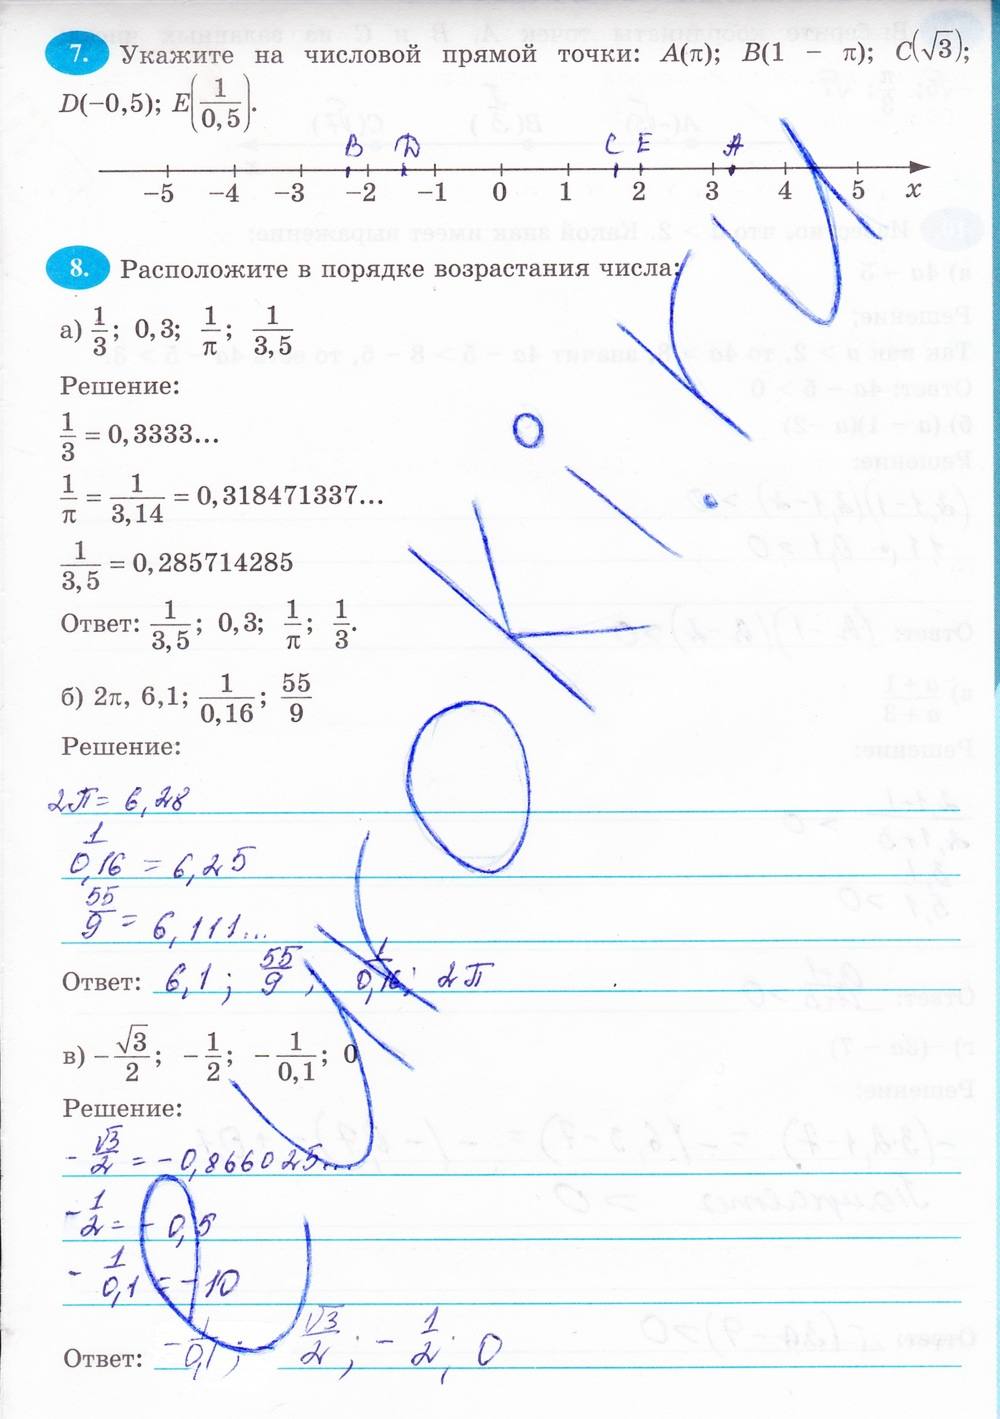 7. Укажите на числовой прямой точки: A(π); B(1 − π); C(√3);
D(−0,5); E(1/0,5).
B D C E A
−5 −4 −3 −2 −1 0 1 2 3 4 5 x
8. Расположите в порядке возрастания числа:
а) 1/3; 0,3; 1/π; 1/3,5
Решение:
1/3 = 0,3333...
1/π = 1/3,14 = 0,318471337...
1/3,5 = 0,285714285
Ответ: 1/3,5; 0,3; 1/π; 1/3.
б) 2π, 6,1; 1/0,16; 55/9
Решение:
2π = 6,28
1/0,16 = 6,25
55/9 = 6,111...
Ответ: 6,1; 55/9; 1/0,16; 2π
в) −√3/2; −1/2; −1/0,1; 0
Решение:
−√3/2 = −0,866025...
−1/2 = −0,5
−1/0,1 = −10
Ответ: −1/0,1; −√3/2; −1/2; 0